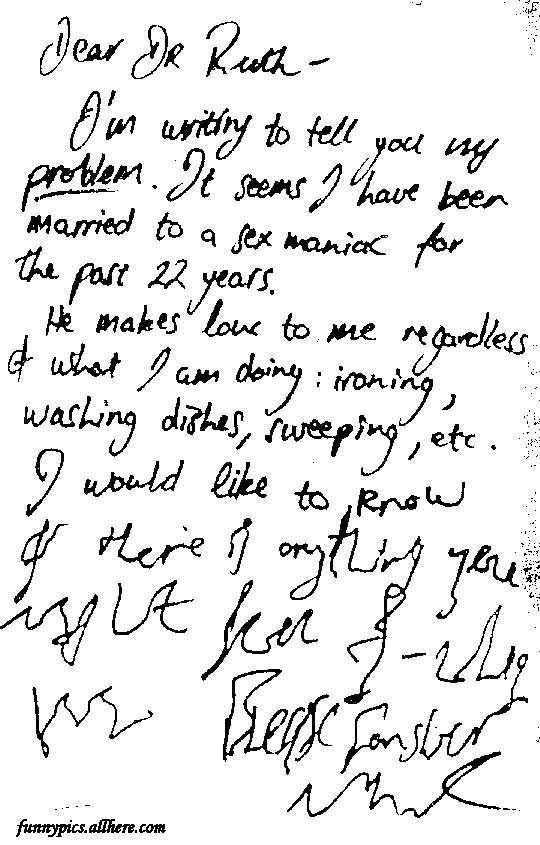 Dear Dr Ruth –
I'm writing to tell you my
problem. It seems I have been
married to a sex maniac for
the past 22 years.
He makes love to me regardless
of what I am doing: ironing,
washing dishes, sweeping, etc.
I would like to know
if there is anything you
funnypics.allhere.com